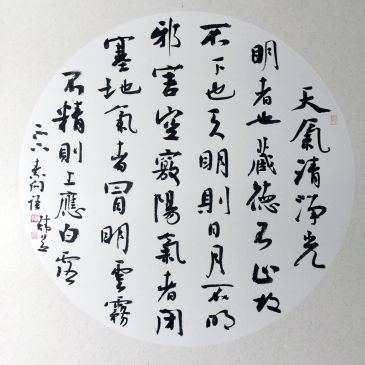 天氣清淨光
明者也藏德不止故
不下也天明則日月不明
邪害空竅陽氣者閉
塞地氣者冒明雲霧
不精則上應白露
素問語